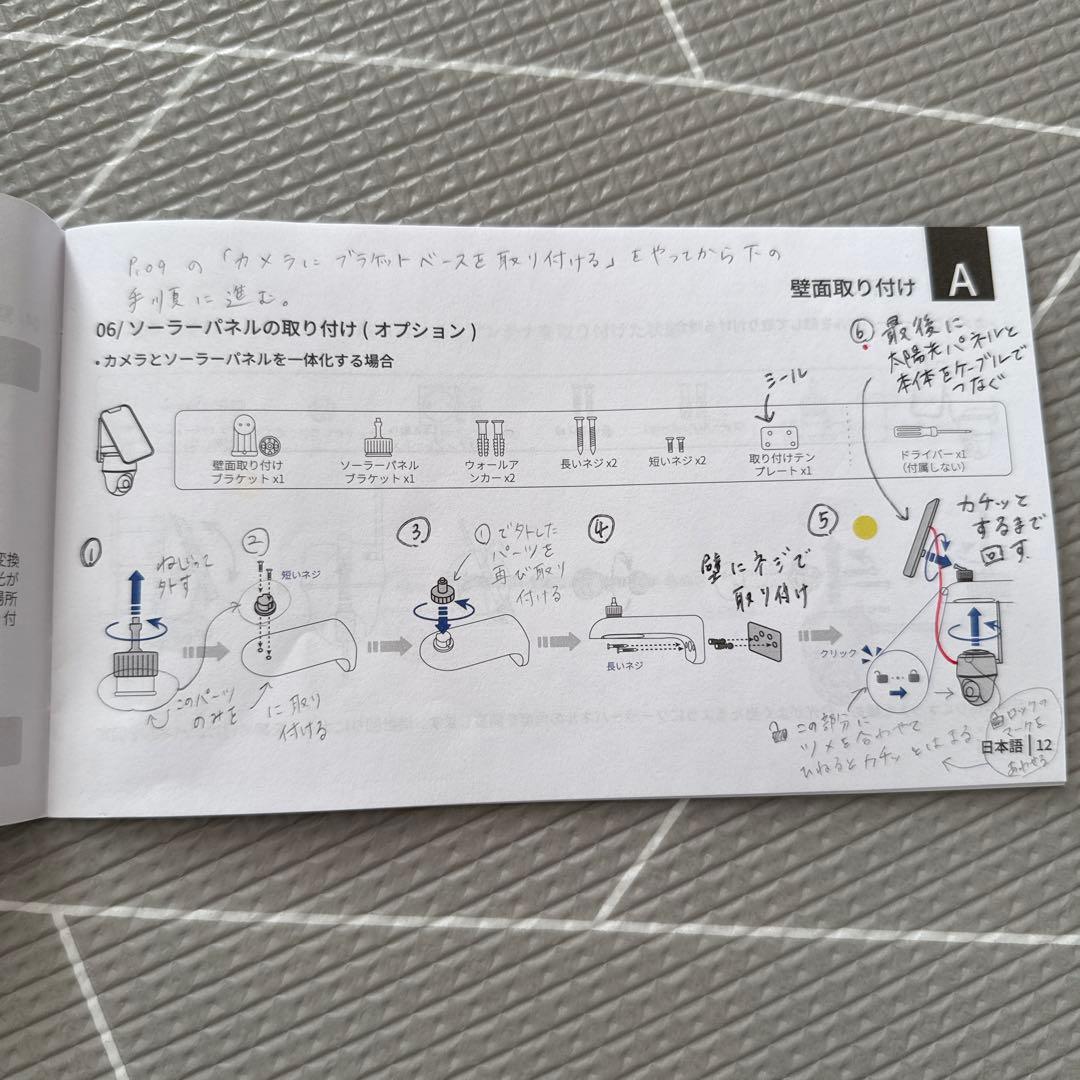 P.09 の「カメラに ブラケットベースを取り付ける」をやってから下の
手順に進む。
壁面取り付け
A
06/ ソーラーパネルの取り付け ( オプション )
• カメラとソーラーパネルを一体化する場合
⑥ 最後に
太陽光パネルと
本体をケーブルで
つなぐ
シール
壁面取り付け
ブラケット x1
ソーラーパネル
ブラケット x1
ウォールア
ンカー x2
長いネジ x2
短いネジ x2
取り付けテン
プレート x1
ドライバー x1
(付属しない)
①
ねじって
外す
このパーツ
のみを
②
短いネジ
に取り
付ける
③
①で外した
パーツを
再び取り
付ける
④
長いネジ
壁にネジで
取り付け
⑤
カチッと
するまで
回す
クリック
この部分に
ツメを合わせて
ひねるとカチッとはまる
ロックの
マークを
あわせる
日本語 | 12
変換
光が
場所
付